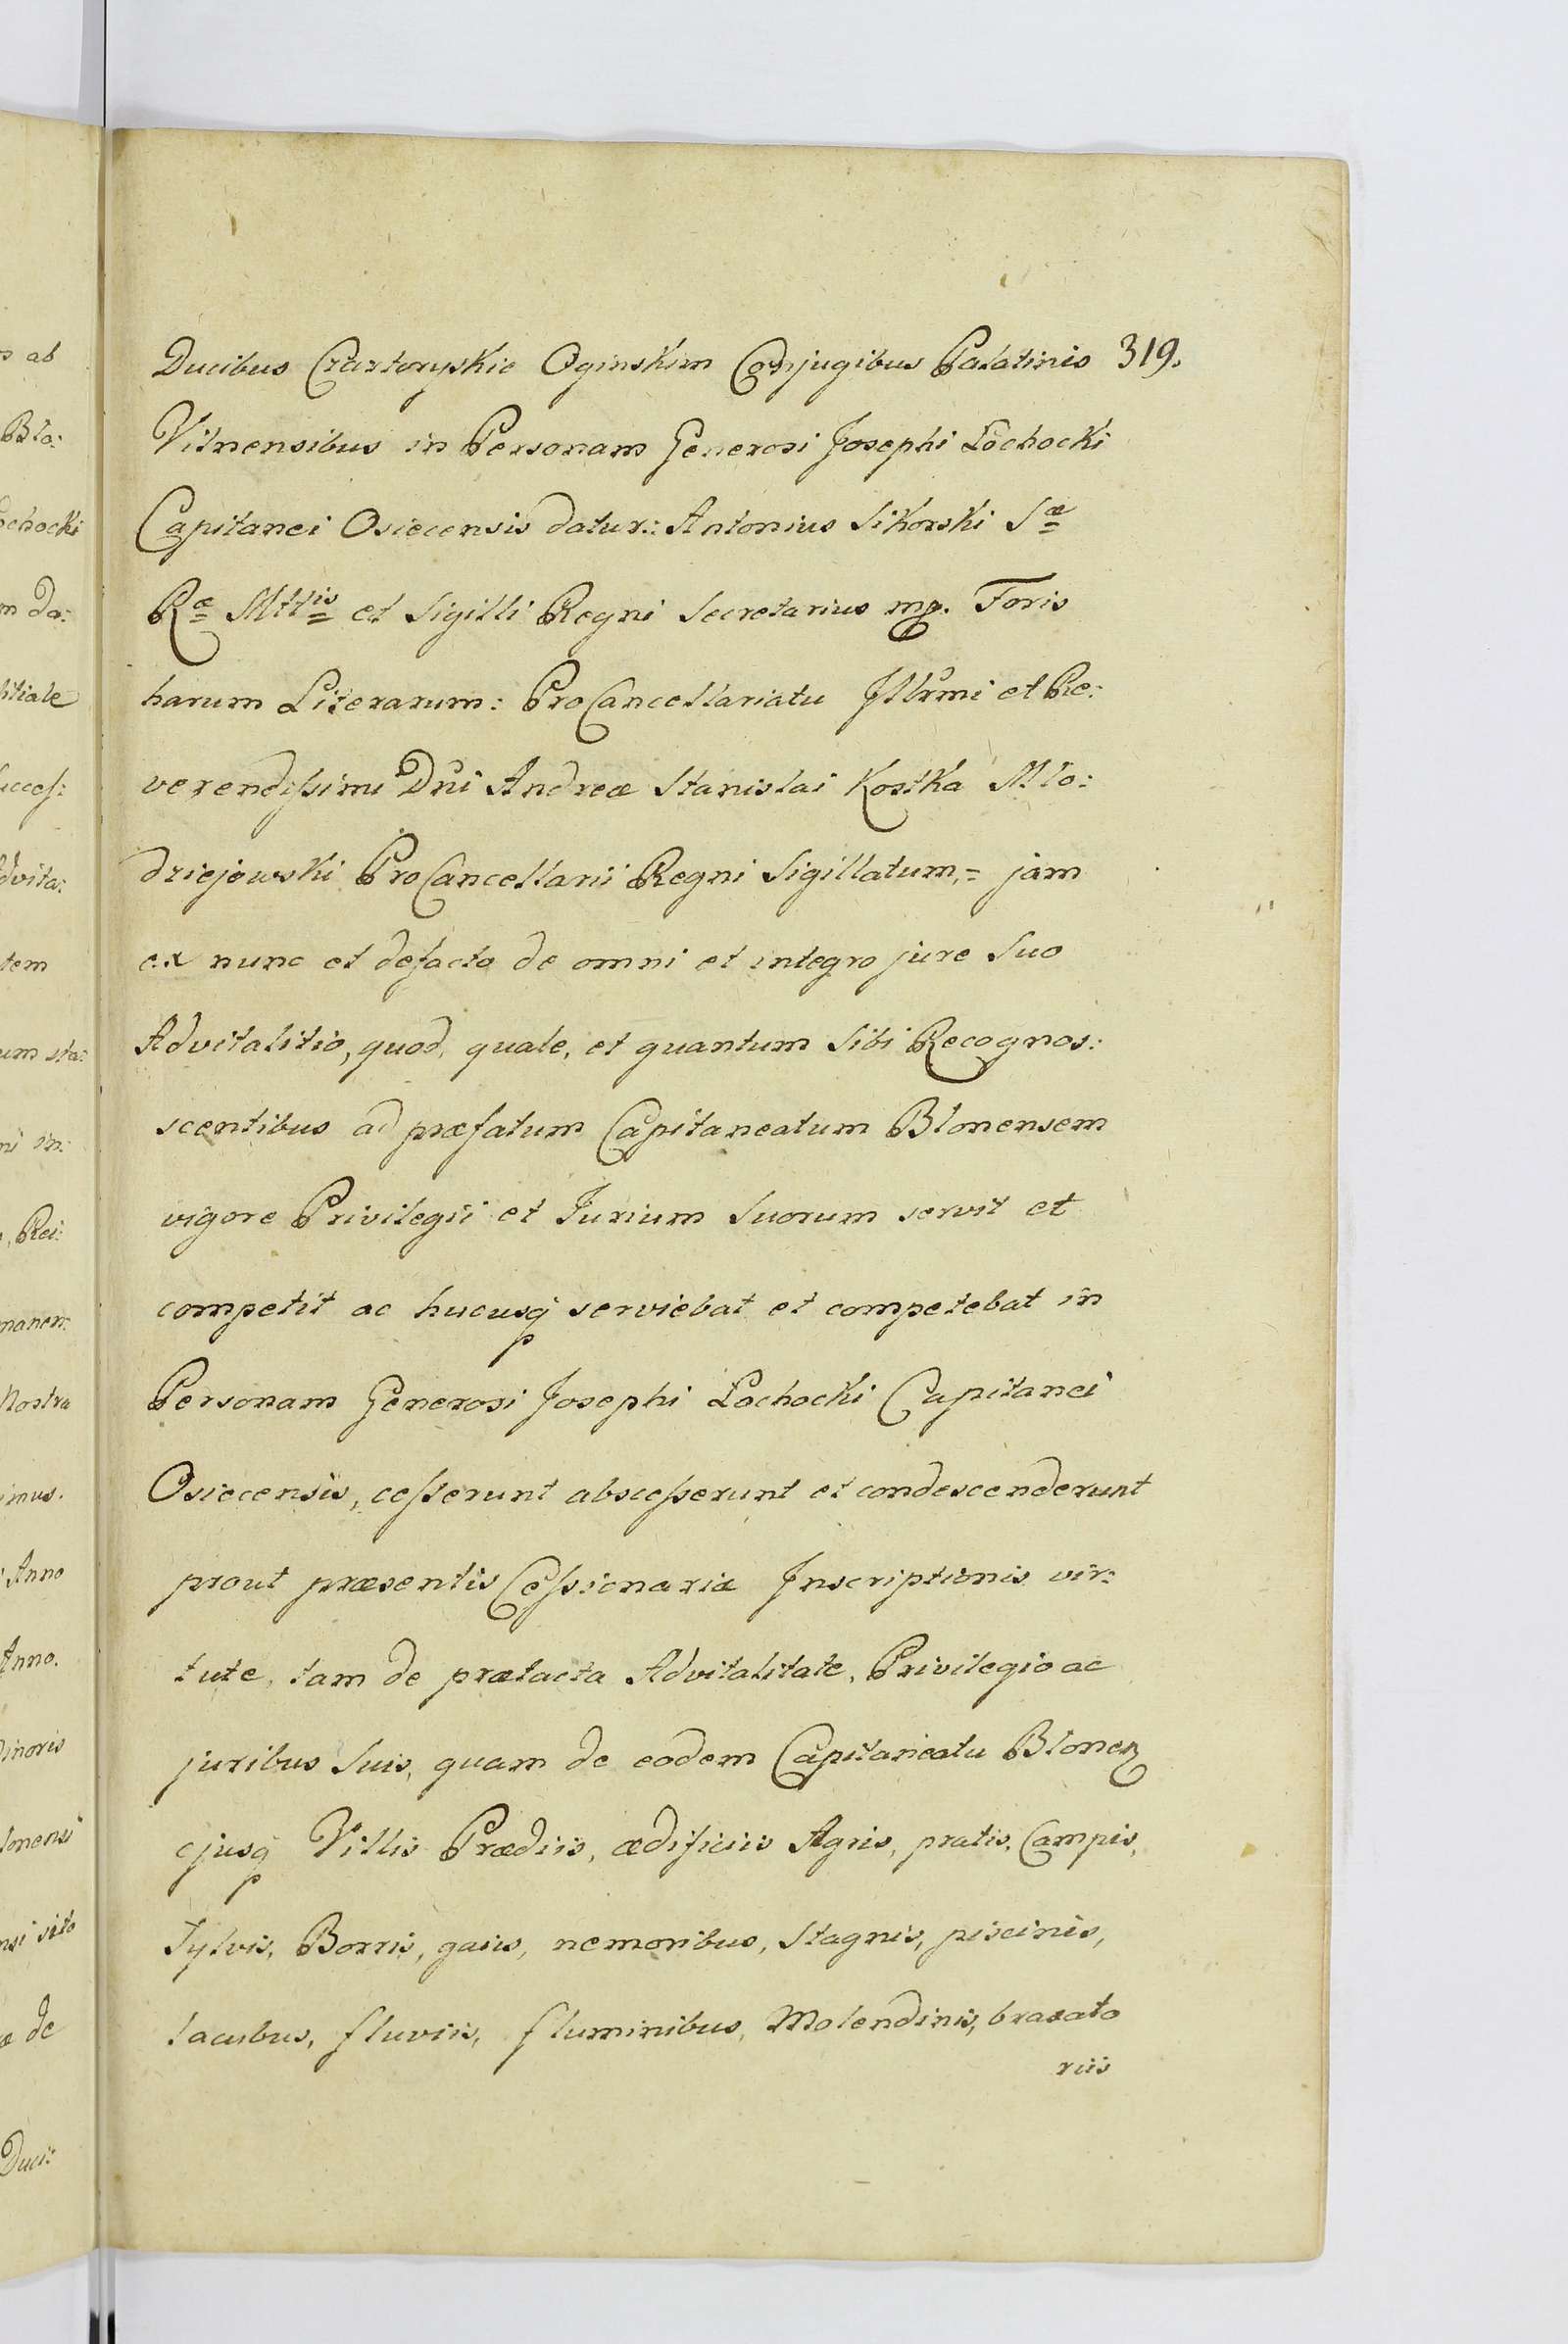 Ducibus Czartoryskie Oginskim Conjugibus Palatinis 319.
Vilnensibus in Personam Generosi Josephi Łochocki
Capitanei Osiecensis datur: Antonius Sikorski Sæ
Ræ Mttis et Sigilli Regni Secretarius mp. Foris
harum Literarum: ProCancellariatu Jllrmi et Re:
verendissimi Dni Andreæ Stanislai Kostka Mło:
dziejowski ProCancellarii Regni Sigillatum,= jam
ex nunc et defacto de omni et integro jure Suo
Advitalitio, quod, quale, et quantum Sibi Recognos:
scentibus ad præfatum Capitaneatum Blonensem
vigore Privilegii et Jurium Suorum servit et
competit ac hucusq serviebat et competebat in
Personam Generosi Josephi Łochocki Capitanei
Osiecensis, cesserunt abscesserunt et condescenderunt
prout præsentis Cessionariæ Jnscriptionis vir:
tute, tam de prætacta Advitalitate, Privilegio ac
juribus Suis, quam de eodem Capitaneatu Blonen
ejusq Villis Prædiis, ædificiis Agris, pratis, Campis,
Sylvis, Borris, gaiis, nemoribus, Stagnis, piscinis,
lacubus, fluviis, fluminibus, Molendinis, braxato
riis
ab
Blo:
ochocki
da:
litiale
ucces:
dvita:
tem
um sta:
in:
Rei:
manen:
Nostra
imus.
Anno
Anno.
inoris
lonensi
nsi sito
de
Duci: